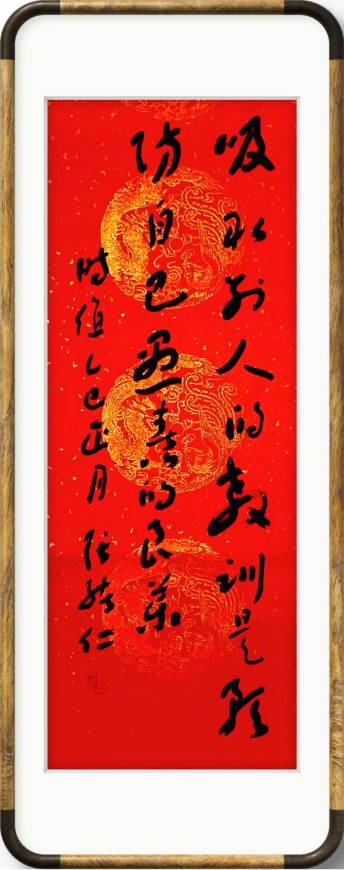 吸取别人的教训是预
防自己愚蠢的良药
时值乙巳正月 张继仁